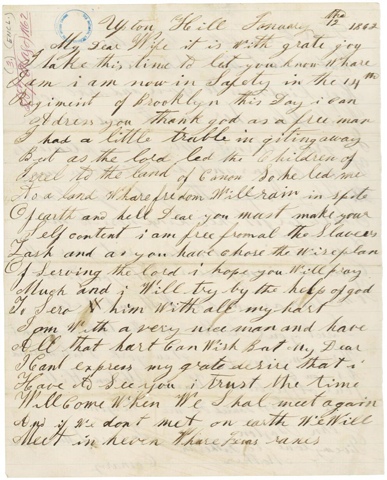 Upton Hill January the 12 1862
My Dear Wife it is with grate joy
I take this time to let you know Whare
I am i am now in Safety in the 14th
Regiment of Brooklyn this Day i can
Adress you thank god as a free man
I had a little truble in giting away
But as the lord led the Children of
Isrel to the land of Canon So he led me
To a land Whare fredom Will rain in spite
Of earth and hell Dear you must make your
Self content i am free from al the Slavers
Lash and as you have chose the Wise plan
Of Serving the lord i hope you Will pray
Much and i Will try by the help of god
To Serv him With all my hart
I am With a very nice man and have
All that hart Can Wish But My Dear
I Cant express my grate desire that i
Have to See you i trust the time
Will Come When We Shal meet again
And if We dont met on earth We Will
Meet in heven Whare Jesas ranes